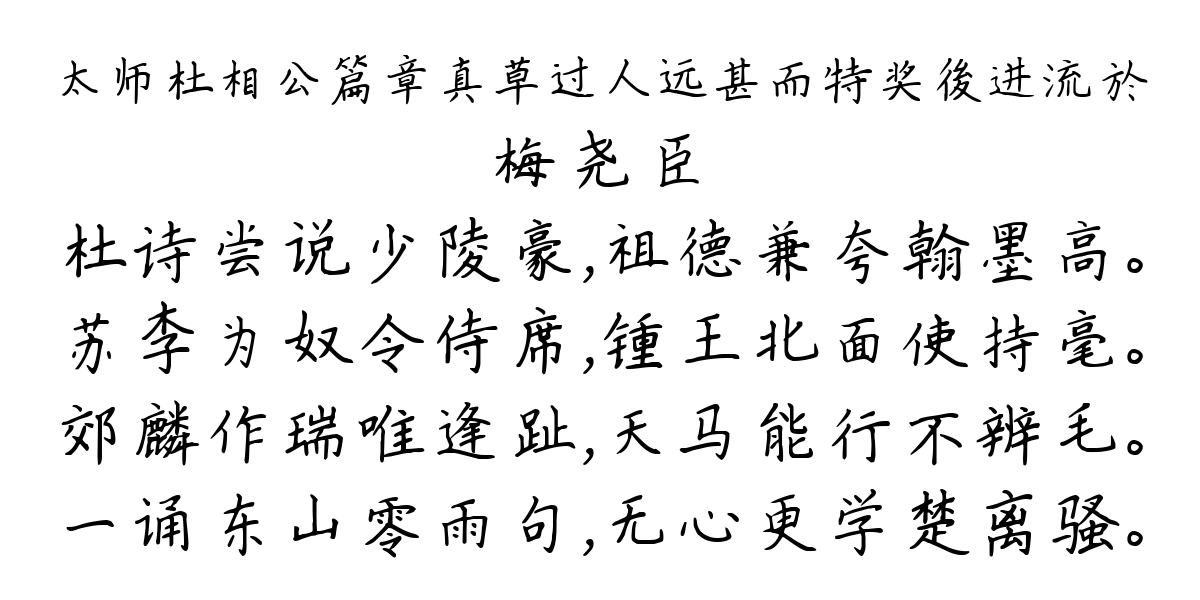 太师杜相公篇章真草过人远甚而特奖後进流於
梅尧臣
杜诗尝说少陵豪,祖德兼夸翰墨高。
苏李为奴令侍席,锺王北面使持毫。
郊麟作瑞唯逢趾,天马能行不辨毛。
一诵东山零雨句,无心更学楚离骚。